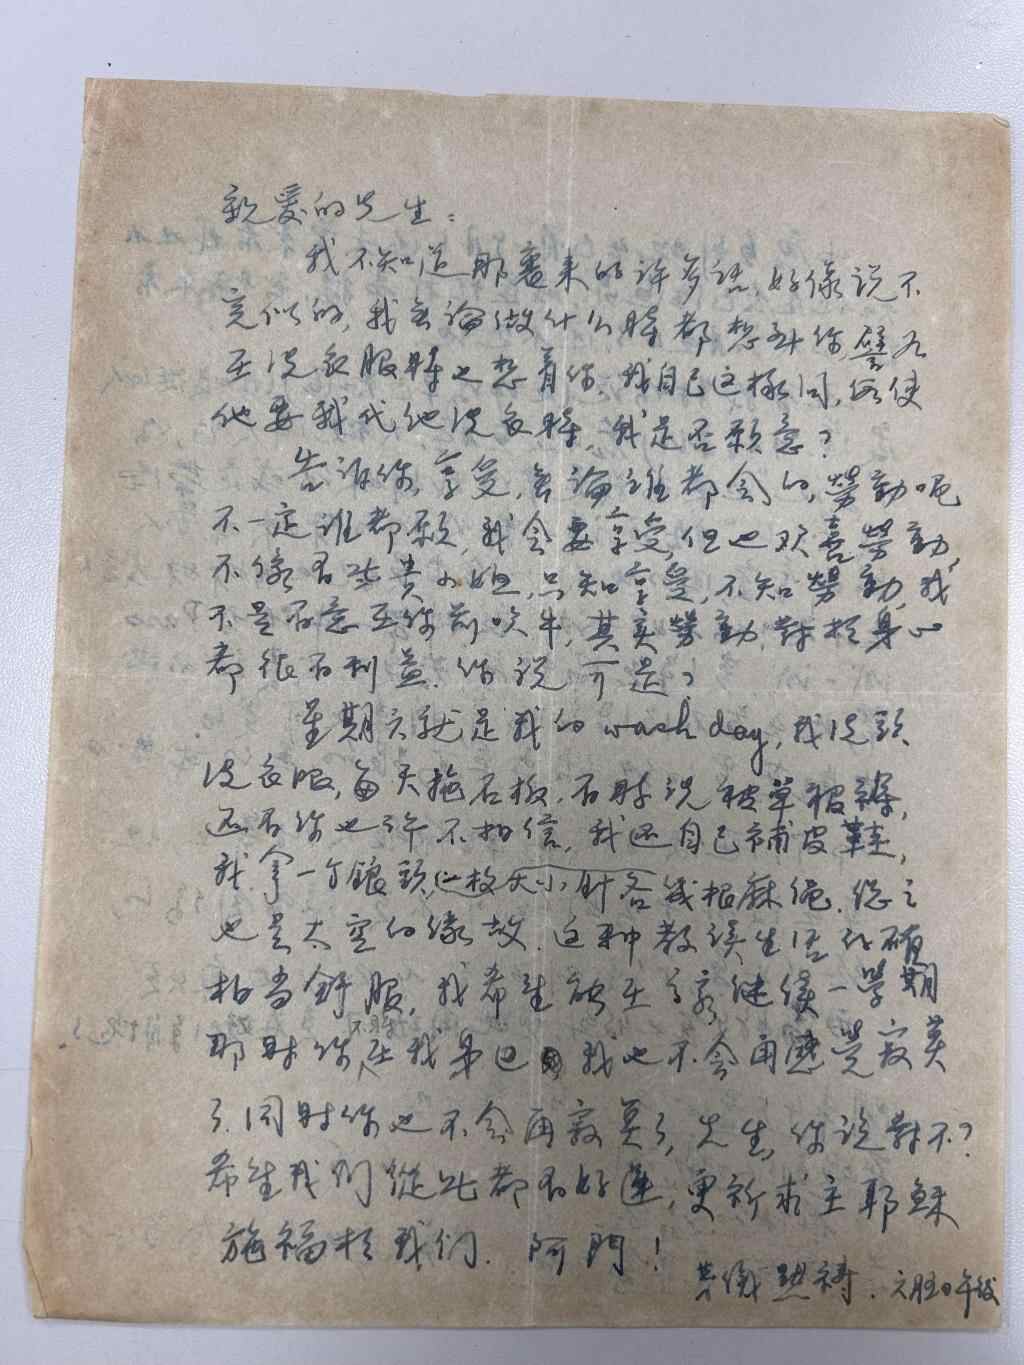 親爱的先生：
我不知道那裏来的许多话，好像说不
完似的，我無論做什么時都想到你，譬如
在洗衣服時也想着你，我自己这樣问，假使
他要我代他洗衣時，我是否願意？
告诉你，享受，無論誰都会的，勞動呢
不一定谁都願，我会要享受，但也欢喜勞動，
不像有些贵小姐，只知享受，不知勞動，我
不是有意在你前吹牛，其实勞動，對於身心
都很有利益，你说可是？
星期六就是我的 wash day，我洗頭
洗衣服，每天拖石板，有时洗被單被褥，
还有你也许不相信，我还自己補皮鞋，
我拿一个鎯頭，一枚大小針各几根麻绳，總之
也是太空的缘故，这种教读生活的確
相当舒服，我希望能在家继續一學期
那时你在我身边，我也不会再感覺寂莫
了，同时你也不会再寂莫了，先生，你说對不？
希望我們從此都有好運，更祈求主耶穌
施福於我们，阿門！